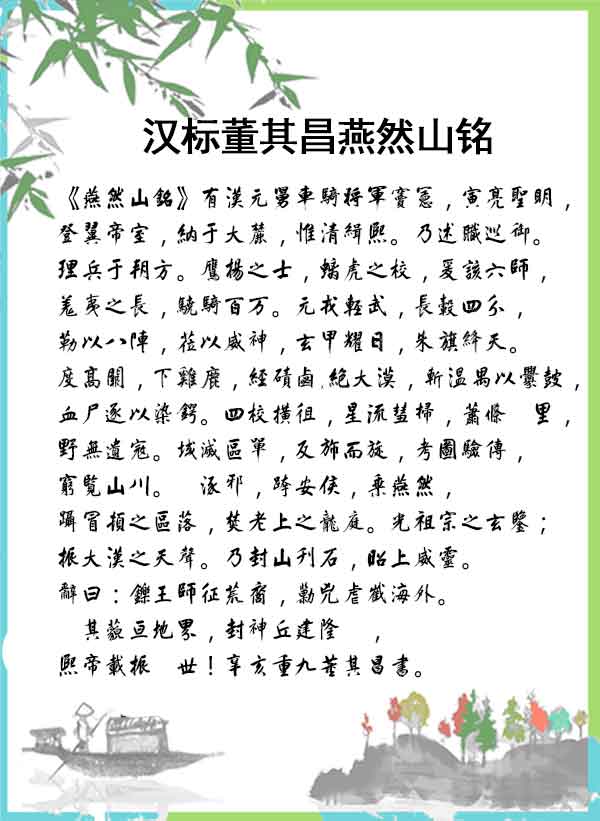 汉标董其昌燕然山铭
《燕然山銘》有漢元舅車騎將軍竇憲，寅亮聖明，
登翼帝室，納于大麓，惟清緝熙。乃述職巡御。
理兵于朔方。鷹楊之士，螭虎之校，爰該六師，
羌夷之長，驍騎百万。元戎輕武，長轂四分，
勒以八陣，莅以威神，玄甲耀日，朱旗絳天。
度高闕，下雞鹿，經磧鹵，絶大漠，斬温禺以釁鼓，
血尸逐以染鍔。四校横徂，星流彗掃，蕭條　里，
野無遺寇。域滅區單，反旆而旋，考圖驗傳，
窮覽山川。　涿邪，跨安侯，乘燕然，
躡冒頓之區落，焚老上之龍庭。光祖宗之玄鑒；
振大漢之天聲。乃封山刊石，昭上威靈。
辭曰：鑠王師征荒裔，勦兇虐截海外。
其藐亘地界，封神丘建隆　，
熙帝載振　世！辛亥重九董其昌書。